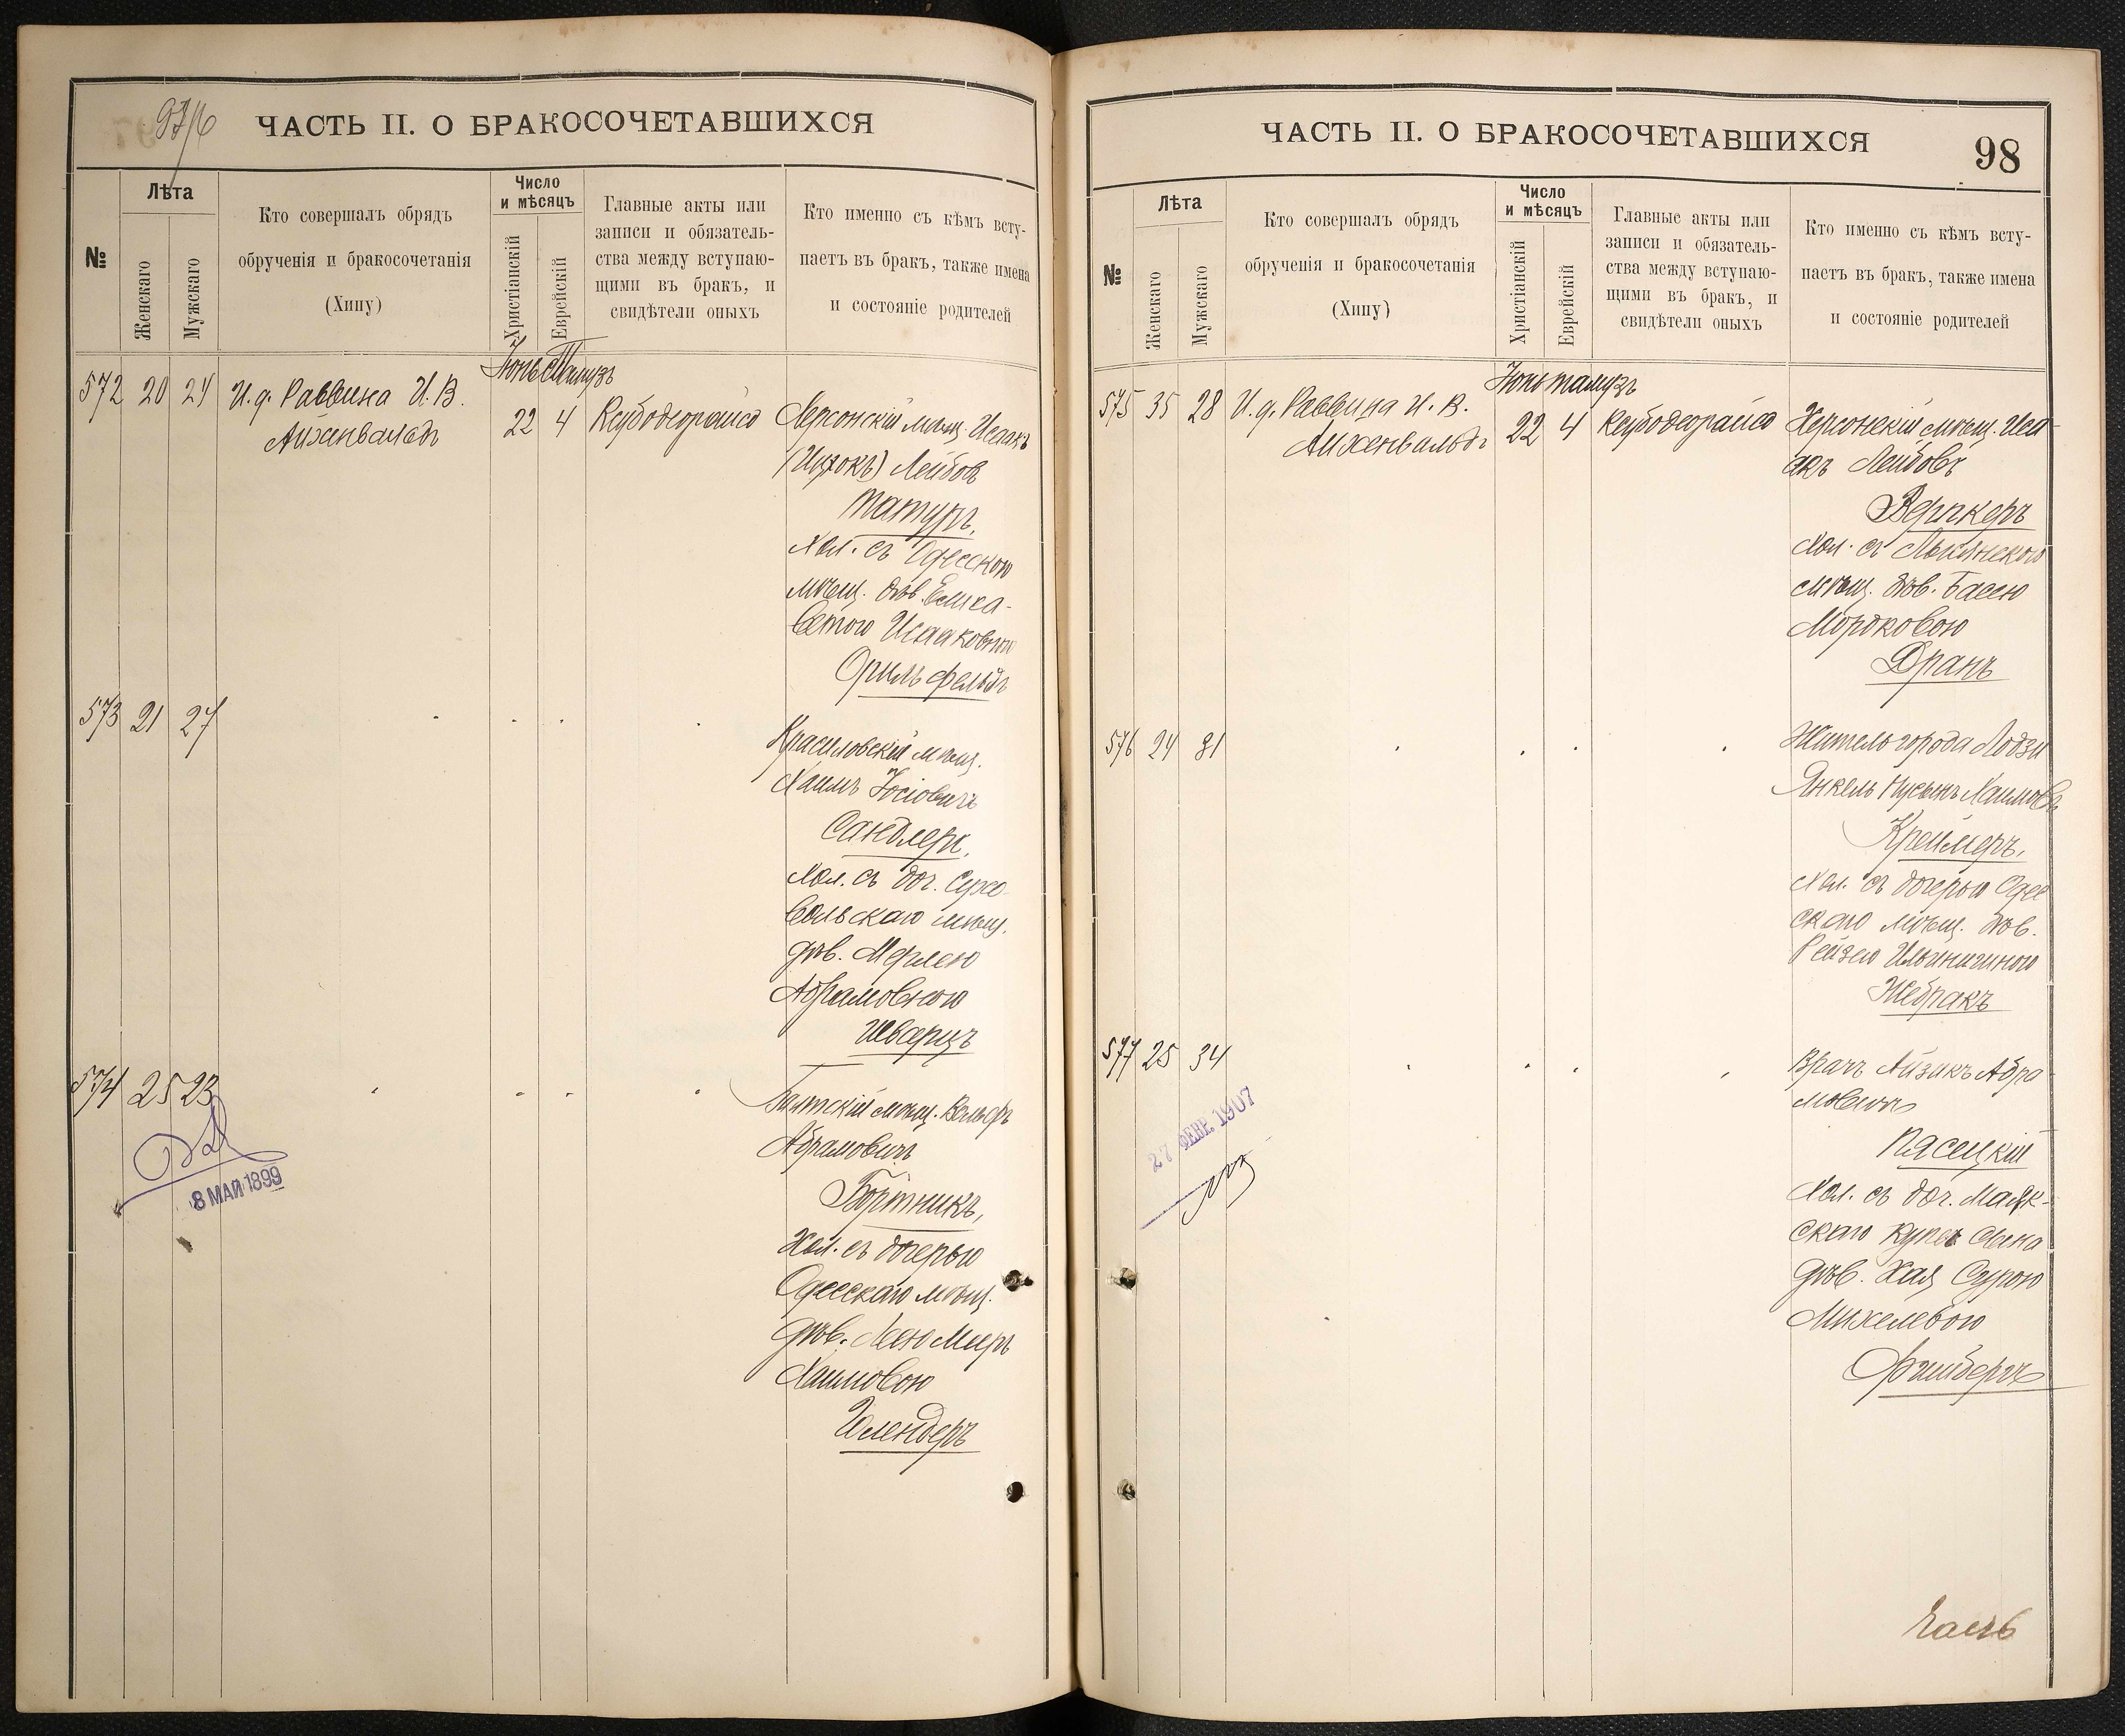 97/б
ЧАСТЬ II. О БРАКОСОЧЕТАВШИХСЯ
№
Лѣта
Женскаго
Мужскаго
Кто совершалъ обрядъ
обрученія и бракосочетанія
(Хипу)
Число
и мѣсяцъ
Христіанскій
Еврейскій
Главные акты или
записи и обязатель-
ства между вступаю-
щими въ бракъ, и
свидѣтели оныхъ
Кто именно съ кѣмъ всту-
паетъ въ бракъ, также имена
и состояніе родителей
Іюнь Тамузъ
572 20 24 И.д. Раввина И.В.
Айхенвальдъ
22 4 Ксубодеорайсо
Херсонскій мѣщ. Исаакъ
(Ицхокъ) Лейбовъ
Татуръ,
хол. съ Одесскою
мѣщ. дѣв. Елиса-
ветою Исааковною
Фрильфельдъ
573 21 27
Красиловскій мѣщ.
Хаимъ Іосіовичъ
Сандлеръ,
хол. съ доч.
мѣщ.
дѣв. Мерлею
Абрамовною
Шварцъ
574 25 23
Балтскій мѣщ. Вольфъ
Абрамовичъ
Бортникъ,
хол. съ дочерью
Одесскаго мѣщ.
дѣв.
Хаимовою
Голендеръ
8 МАЙ 1899
ЧАСТЬ II. О БРАКОСОЧЕТАВШИХСЯ
98
№
Лѣта
Женскаго
Мужскаго
Кто совершалъ обрядъ
обрученія и бракосочетанія
(Хипу)
Число
и мѣсяцъ
Христіанскій
Еврейскій
Главные акты или
записи и обязатель-
ства между вступаю-
щими въ бракъ, и
свидѣтели оныхъ
Кто именно съ кѣмъ всту-
паетъ въ бракъ, также имена
и состояніе родителей
Іюнь тамузъ
575 35 28 И.д. Раввина И.В.
Айхенвальдъ
22 4 Ксубодеорайсо
Херсонскій мѣщ. Иса-
акъ Лейбовъ
Верткеръ
хол. съ
мѣщ. дѣв. Басею
Мордковою
Дранъ
576 24 31
Житель города Лодзи
Янкель Нусынъ Хаимовъ
Креймеръ,
хол. съ дочерью Одес
скаго мѣщ. дѣв.
Рейзею Ильиничиною
Жебракъ
577 25 34
Врачъ Айзикъ Абра
мовичъ
Пясецкій
хол. съ доч. Маяк-
скаго купеч сына
дѣв. Хая Сурою
Михелевою
Фейнбергъ
27 ФЕВР. 1907
Часть